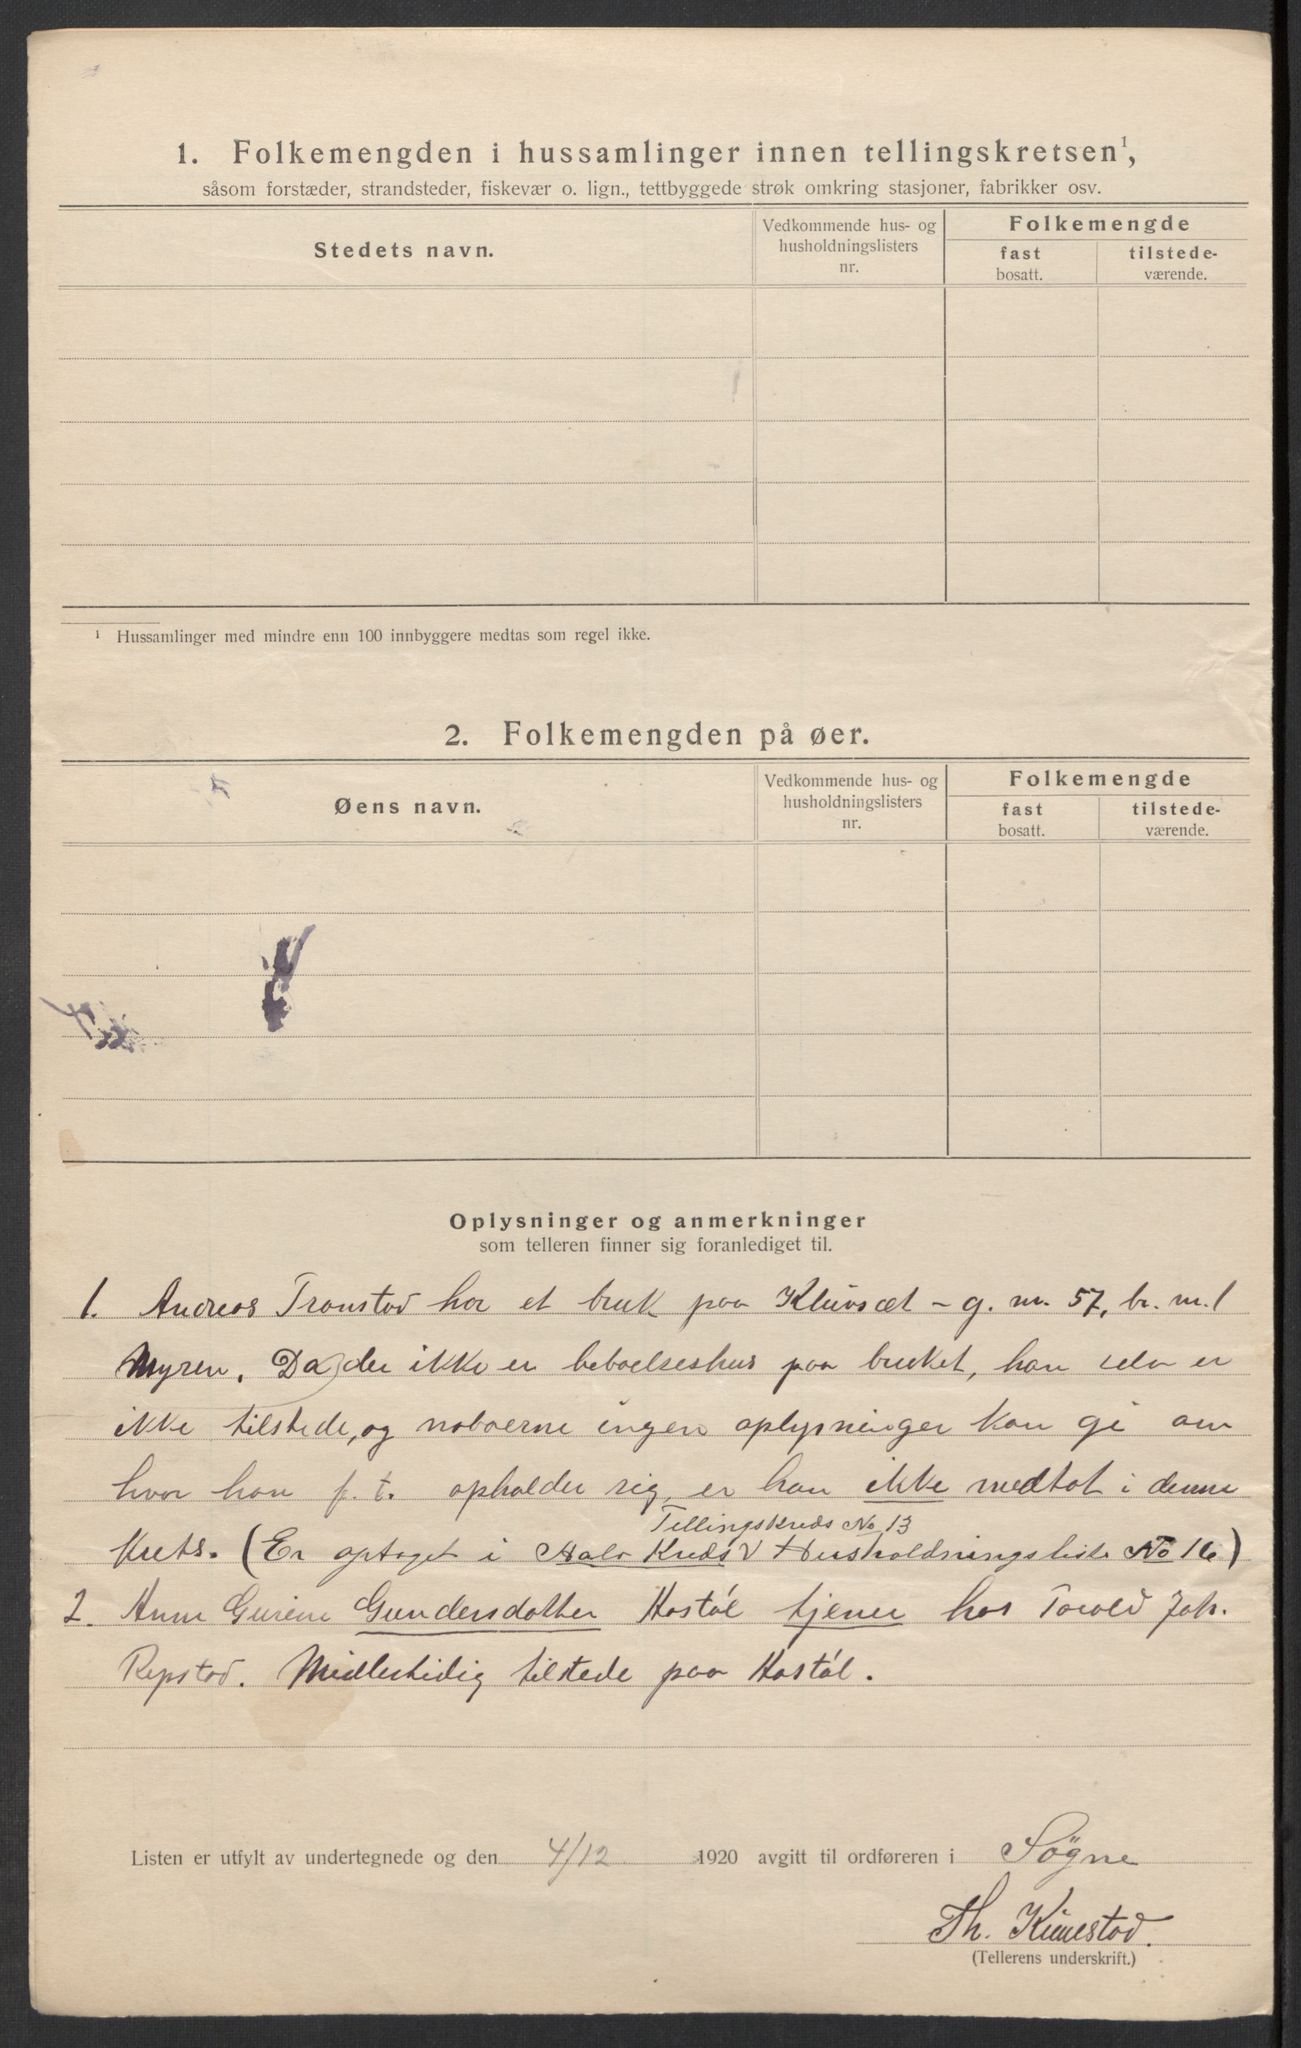 1. Folkemengden i hussamlinger innen tellingskretsen¹,
såsom forstæder, strandsteder, fiskevær o. lign., tettbyggede strøk omkring stasjoner, fabrikker osv.
Stedets navn.
Vedkommende hus- og
husholdningslisters
nr.
Folkemengde
fast
bosatt.
tilstede-
værende.
¹ Hussamlinger med mindre enn 100 innbyggere medtas som regel ikke.
2. Folkemengden på øer.
Øens navn.
Vedkommende hus- og
husholdningslisters
nr.
Folkemengde
fast
bosatt.
tilstede-
værende.
Oplysninger og anmerkninger
som telleren finner sig foranlediget til.
1. Andreas Tronstad har et bruk paa - g. nr. 57, br. nr. 1
Myren. Da der ikke er beboelseshus paa bruket, han selv er
ikke tilstede, og naboerne ingen oplysninger kan gi om
hvor han f. t. opholder sig, er han ikke medtat i denne
Tellingskreds No 13
Krets. (Er optaget i Kreds Husholdningsliste No 16)
2. Anne Gurine Gundersdatter Hastøl tjener hos Torald Joh.
Repstad. Midlertidig tilstede paa Hastøl.
Listen er utfylt av undertegnede og den 4/12 1920 avgitt til ordføreren i Søgne
Th. Kimestad.
(Tellerens underskrift.)